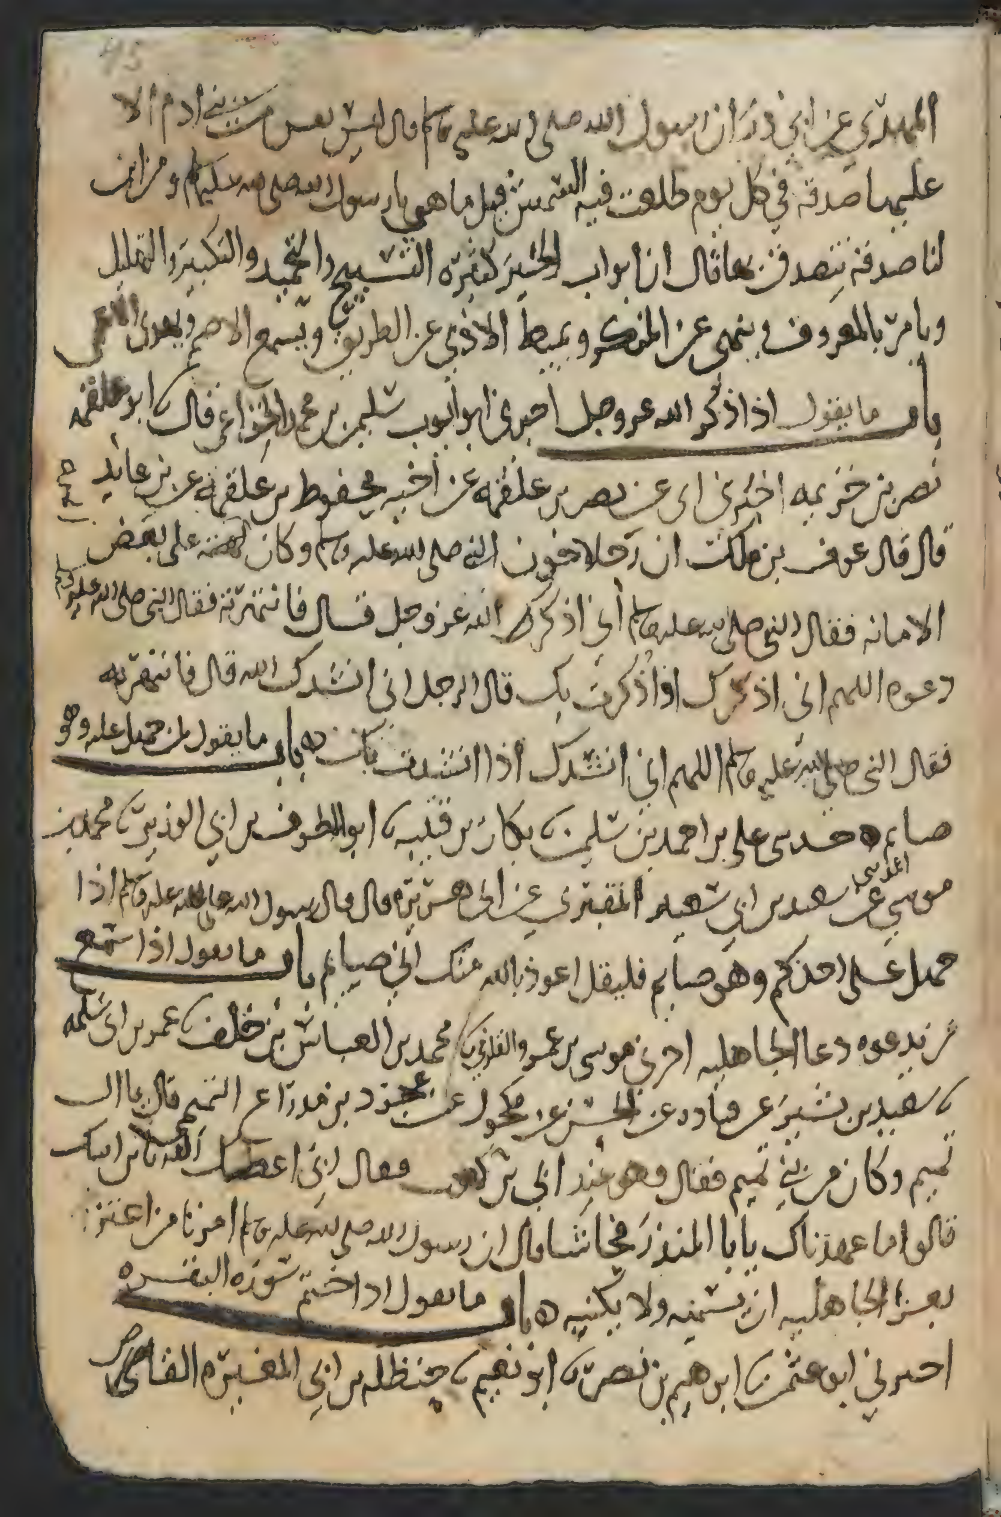 المهدي عن ابي ذر ان رسول الله صلى الله عليه وسلم قال ليس نفس من بني ادم الا
عليها صدقة في كل يوم طلعت فيه الشمس قيل ما هي يا رسول الله صلى الله عليك وسلم ومن اين
لنا صدقة نتصدق بها قال ان ابواب الخير كثيرة التسبيح والتحميد والتكبير والتهليل
ويامر بالمعروف وينهى عن المنكر ويميط الاذى عن الطريق ويسمع الاصم ويهدي الاعمى
باب ما يقول اذا ذكر الله عز وجل اخبرني ابو ايوب سليمن بن محمد الخزاعي قال ابو علقمه
نصر بن خزيمه اخبرني ابي عن نصر بن علقمه عن اخيه محفوظ بن علقمه عن بن عايذ
قال قال عوف بن ملك ان رجلا خون النبي صلى الله عليه وسلم وكان على بعض
الامانه فقال النبي صلى الله عليه وسلم اني اذكرك الله عز وجل قال فانتهرته فقال النبي صلى الله عليه وسلم
دعوه اللهم اني اذكرك او اذكرت بك قال الرجل اني انشدك الله قال فانتهرته
فقال النبي صلى الله عليه وسلم اللهم اني انشدك اذا انشدت بك ه باب ما يقول من جهل عليه وهو
صايم ه حدثني علي بن احمد بن سليمن بكار بن قتيبه ابو المطرف بن ابي الوزير محمد بن
موسى عن سعيد بن ابي سعيد المقبري عن ابي هريره قال قال رسول الله صلى الله عليه وسلم اذا
جهل على احدكم وهو صايم فليقل اعوذ بالله منك اني صايم باب ما يقول اذا سمع
من يدعوه دعا الجاهليه اخبرني موسى بن عمر والقلزمي محمد بن العباس بن خلف عمر بن ابي سلمه
سعيد بن بشير عن قتاده عن الحسن عن مكحول عن عجرد بن مدراع التميمي قال يا ال
تميم وكان من بني تميم فقال وهو عند ابي بن كعب فقال ابي اعضك الله باير ابيك
قالوا ما عهدناك يا ابا المنذر فحاشا قال ان رسول الله صلى الله عليه وسلم امرنا من اعتزا
بعزا الجاهليه ان نسميه ولا يكنيه ه باب ما يقول اذا ختم سورة البقره
اخبرني ابو عثمن ابرهيم بن نصر ابو نعيم حنظله بن ابي المغيره القاص